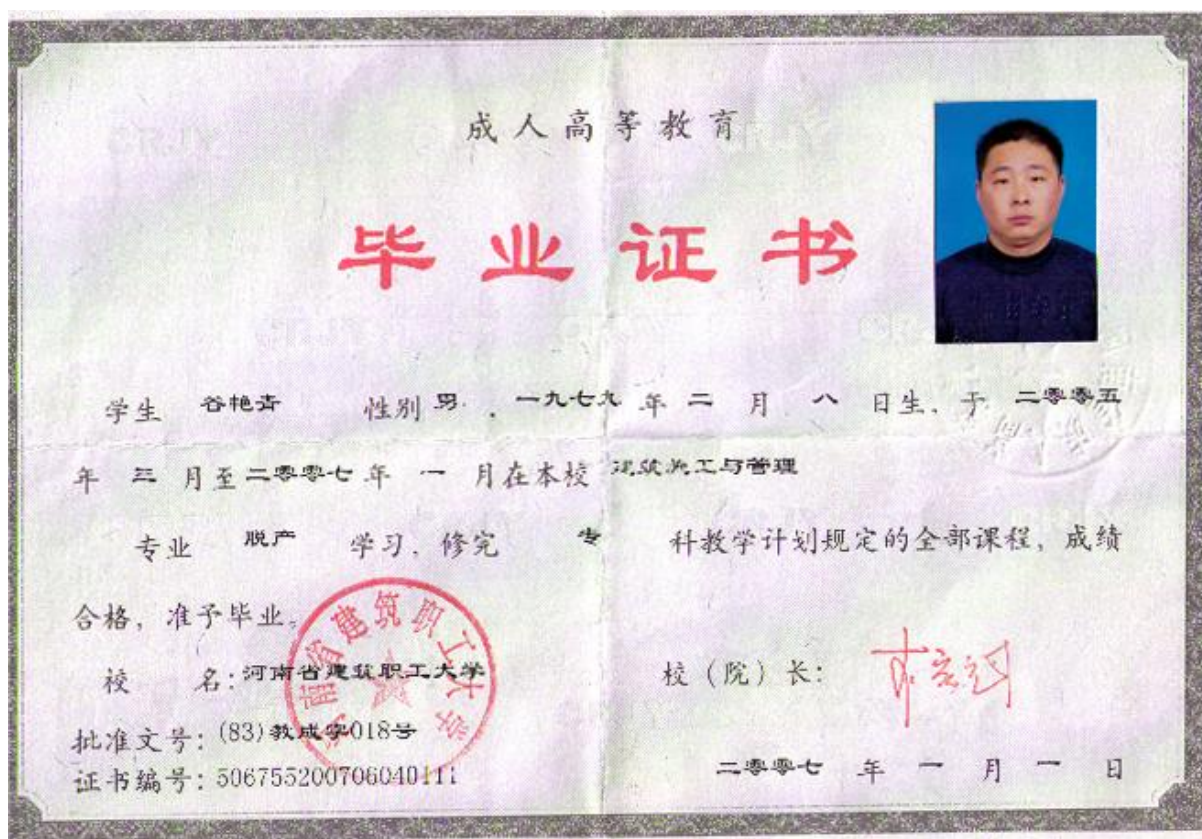 成人高等教育
毕业证书
学生 谷艳青 性别 男，一九七九 年 二 月 八 日生，于 二零零五
年 三 月至 二零零七 年 一 月在本校 建筑施工与管理
专业 脱产 学习，修完 专 科教学计划规定的全部课程，成绩
合格，准予毕业。
河南省建筑职工大学
校 名：河南省建筑职工大学
校（院）长：
批准文号：(83)教成字018号
证书编号：506755200706040111
二零零七 年 一 月 一 日